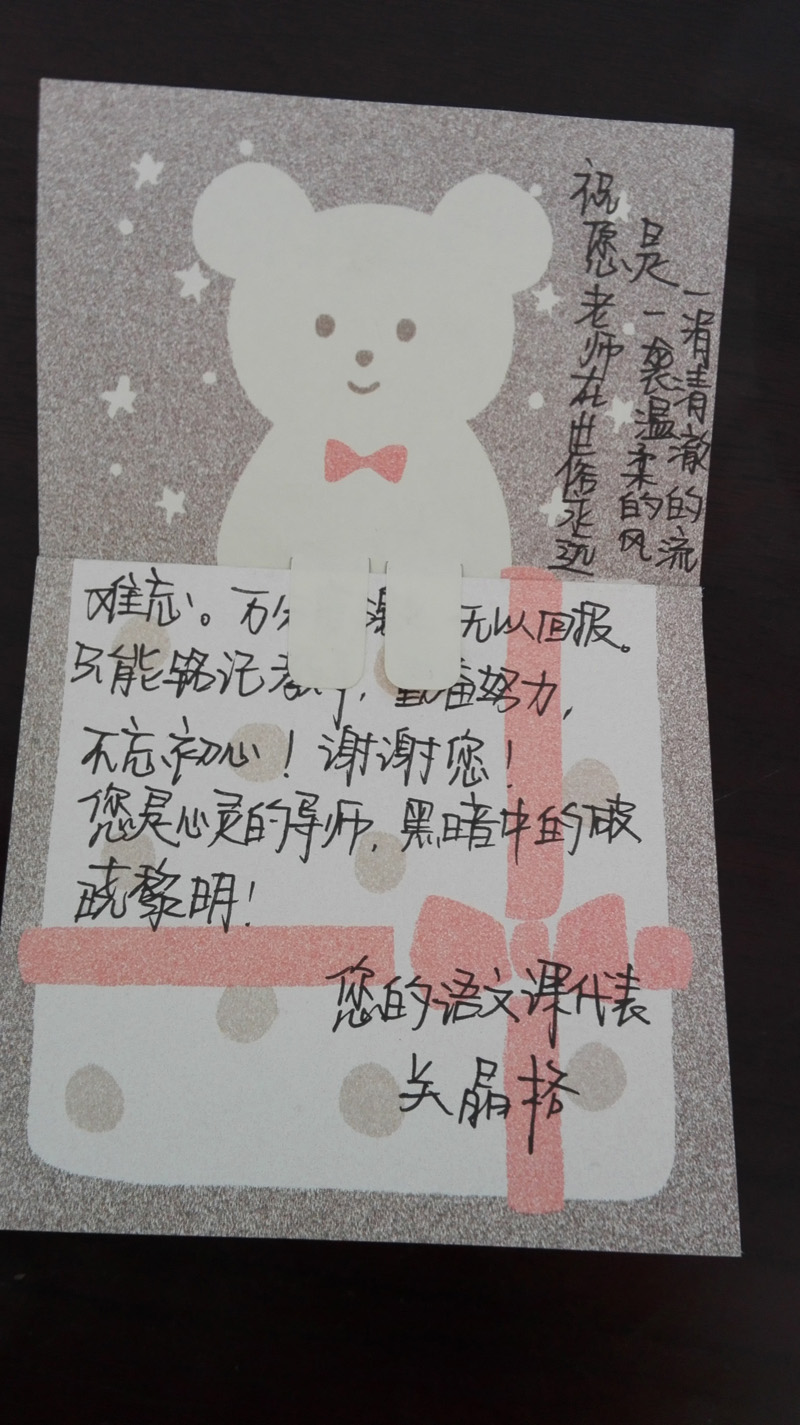 祝愿老师在世俗永远
是一袭温柔的风
一涓清澈的流
难忘。万分 激 无以回报。
只能铭记 ，勤奋努力，
不忘初心！谢谢您！
您是心灵的导师，黑暗中的破
晓黎明！
您的语文课代表
关晶格